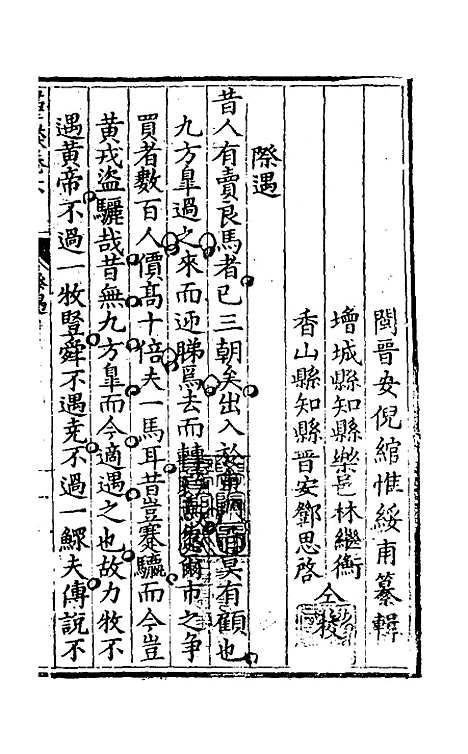 閩晉安倪綰惟綏甫纂輯
增城縣知縣樂邑林繼衡
香山縣知縣晉安鄧思啓
仝校
際遇
昔人有賣良馬者已三朝矣出入於市而莫有顧也
九方臯過之來而迎睇焉去而轉爾市之爭
買者數百人價高十倍夫一馬耳昔豈蹇驢而今豈
黃戎盜驪哉昔無九方臯而今適遇之也故力牧不
遇黃帝不過一牧豎舜不遇堯不過一鰥夫傅說不